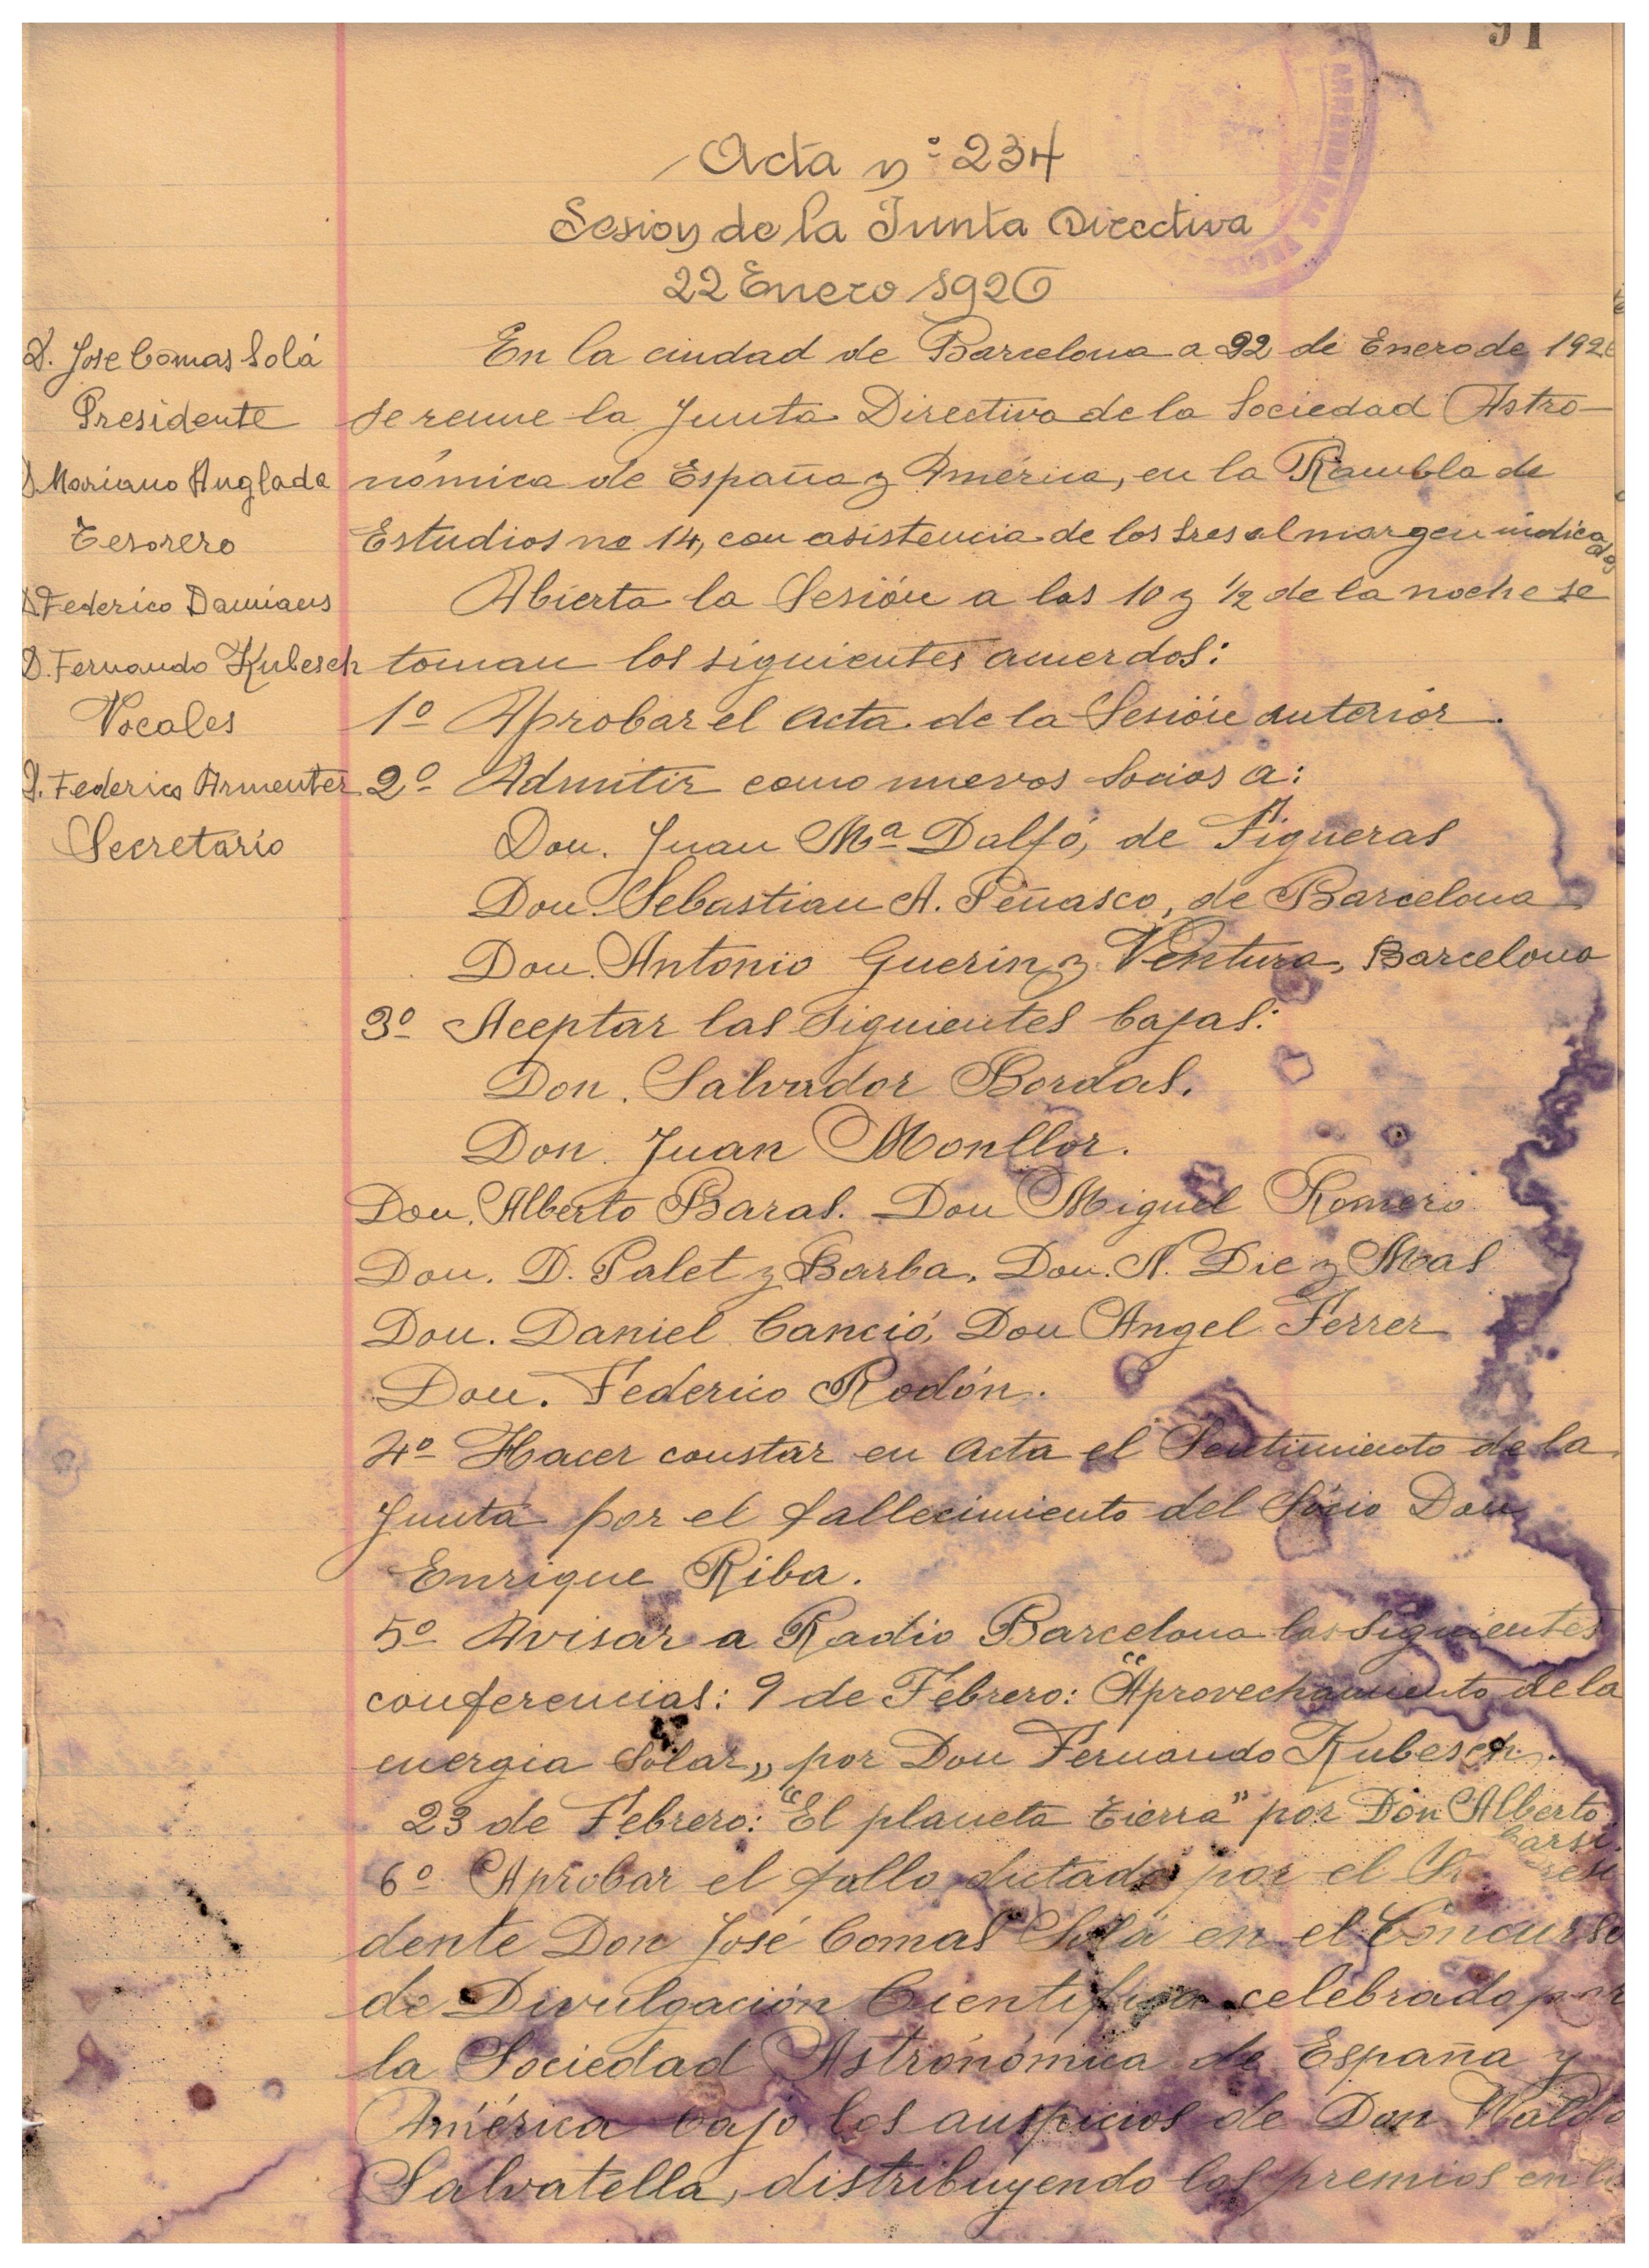 91
Acta nº 234
Sesion de la Junta Directiva
22 Enero 1926
D. Jose Comas Solá
Presidente
D Mariano Anglada
Tesorero
D Federico Damians
D. Fernando Kubesch
Vocales
D. Federico Armenter
Secretario
En la ciudad de Barcelona a 22 de Enero de 1926
se reune la Junta Directiva de la Sociedad Astro-
nómica de España y América, en la Rambla de
Estudios no 14, con asistencia de los Sres al margen indicados
Abierta la Sesión a las 10 y ½ de la noche se
toman los siguientes acuerdos:
1º Aprobar el acta de la Sesión anterior.
2º Admitir como nuevos Socios a:
Don. Juan Mª Dalfó, de Figueras
Don. Sebastian A. Peñasco, de Barcelona
Don. Antonio Guerin y Ventura, Barcelona
3º Aceptar las siguientes bajas:
Don. Salvador Bordas.
Don. Juan Monllor.
Don. Alberto Baras. Don Miguel Romero
Don. D. Palet y Barba. Don. N. Die y Mas
Don. Daniel Canció, Don Angel Ferrer
Don. Federico Rodón.
4º Hacer constar en acta el Sentimiento de la
Junta por el fallecimiento del Socio Don
Enrique Riba.
5º Avisar a Radio Barcelona las siguientes
conferencias: 9 de Febrero: "Aprovechamiento de la
energia Solar„ por Don Fernando Kubesch.
23 de Febrero: "El planeta tierra" por Don Alberto
Carsi.
6º Aprobar el fallo dictado por el
dente Don José Comas Solá en el Concurso
de Divulgación Cientifica celebrado por
la Sociedad Astronómica de España y
América bajo los auspicios de Don Waldo
Salvatella, distribuyendo los premios en